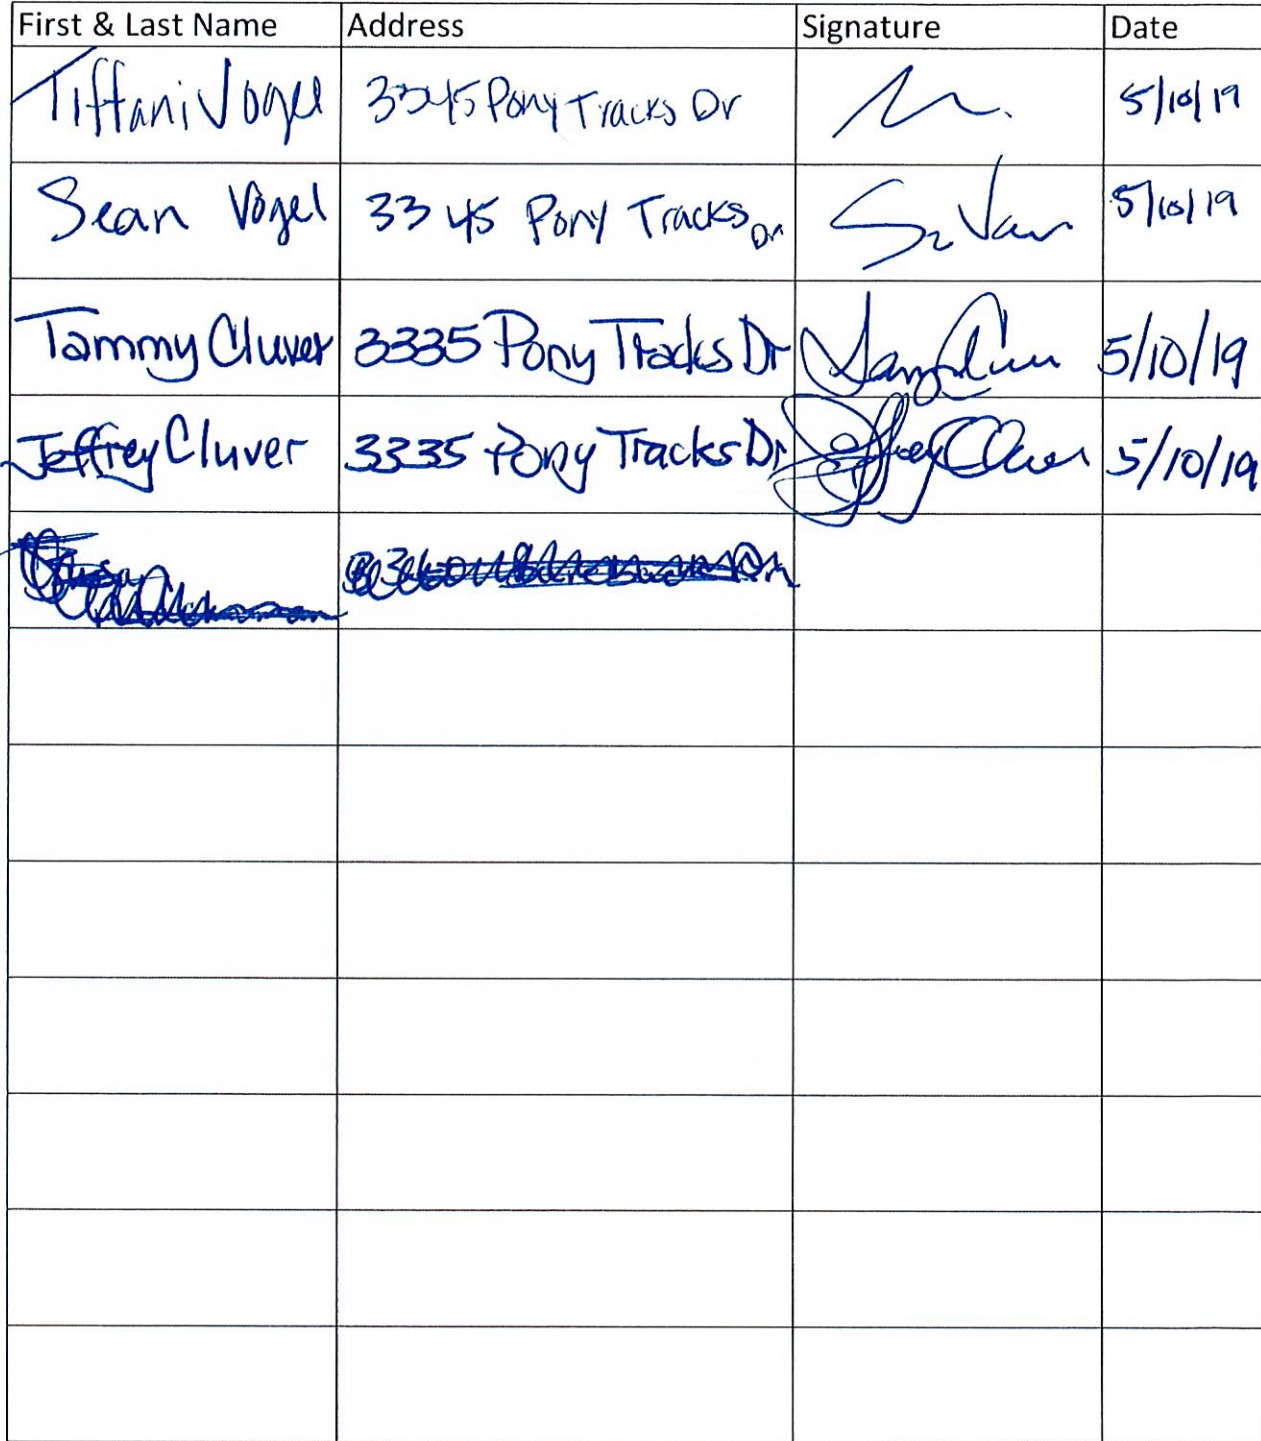 First & Last Name Address Signature Date
Tiffani Vogel 3345 Pony Tracks Dr 5/10/19
Sean Vogel 3345 Pony Tracks Dr 5/10/19
Tammy Cluver 3335 Pony Tracks Dr 5/10/19
Jeffrey Cluver 3335 Pony Tracks Dr Jeffrey Cluver 5/10/19